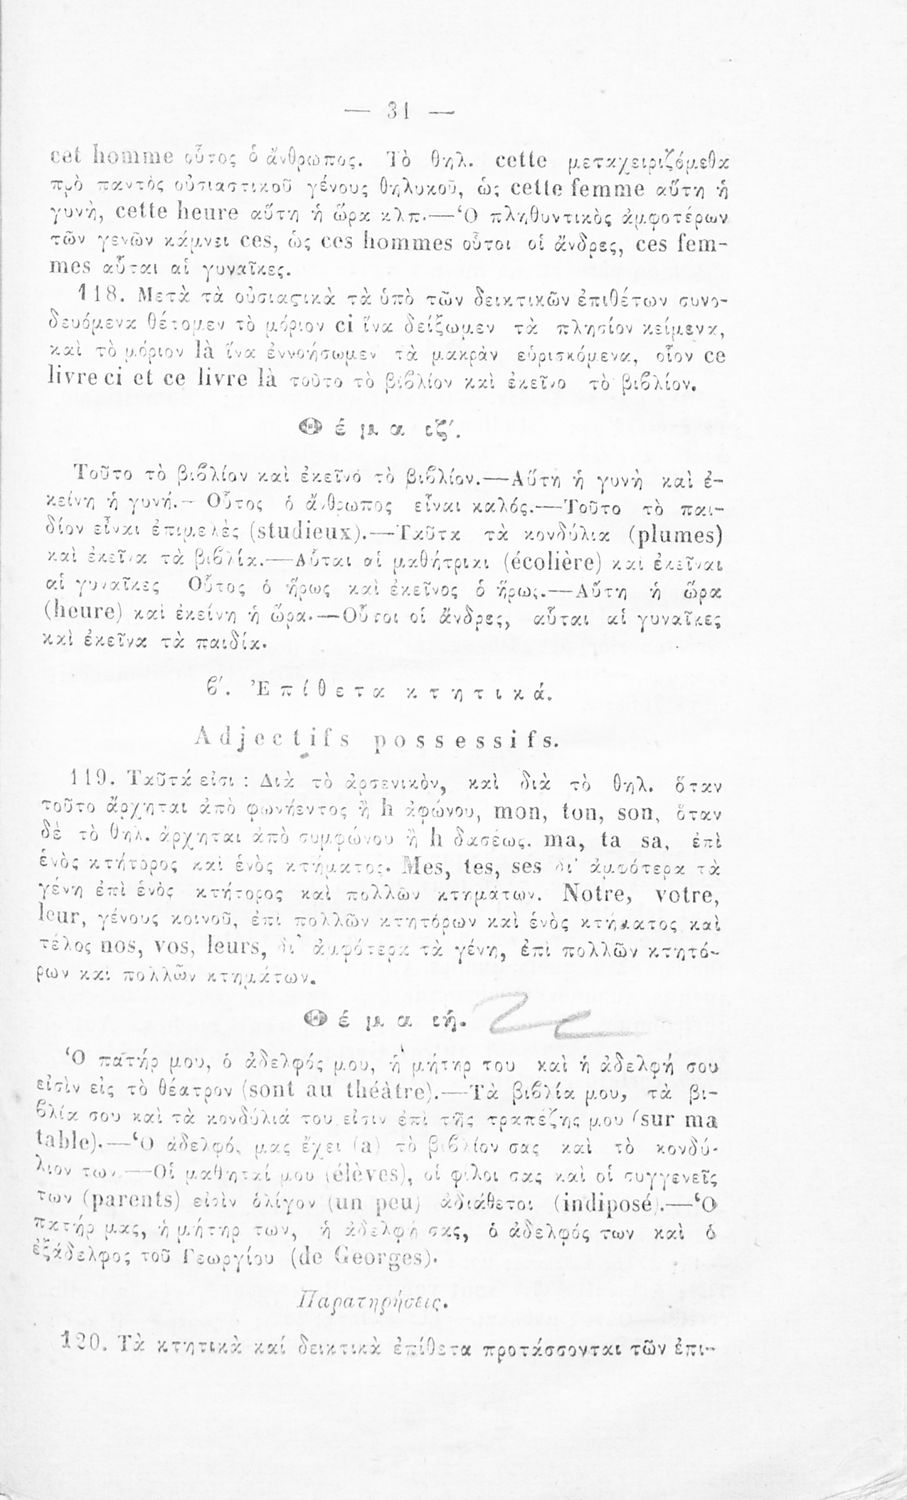 — 31 —
cet homme οὗτος ὁ ἄνθρωπος. Τὸ θηλ. cette μεταχειριζόμεθα
πρὸ παντὸς οὐσιαστικοῦ γένους θηλυκοῦ, ὡς cette femme αὕτη ἡ
γυνὴ, cette heure αὕτη ἡ ὥρα κλπ.—Ὁ πληθυντικὸς ἀμφοτέρων
τῶν γενῶν κάμνει ces, ὡς ces hommes οὗτοι οἱ ἄνδρες, ces fem-
mes αὗται αἱ γυναῖκες.
118. Μετὰ τὰ οὐσιαςικὰ τὰ ὑπὸ τῶν δεικτικῶν ἐπιθέτων συνο-
δευόμενα θέτομεν τὸ μόριον ci ἵνα δείξωμεν τὰ πλησίον κείμενα,
καὶ τὸ μόριον là ἵνα ἐννοήσωμεν τὰ μακρὰν εὑρισκόμενα, οἷον ce
livre ci et ce livre là τοῦτο τὸ βιβλίον καὶ ἐκεῖνο τὸ βιβλίον.
Θέμα ιζ΄.
Τοῦτο τὸ βιβλίον καὶ ἐκεῖνο τὸ βιβλίον.—Αὕτη ἡ γυνὴ καὶ ἐ-
κείνη ἡ γυνή.—Οὗτος ὁ ἄνθρωπος εἶναι καλός.—Τοῦτο τὸ παι-
δίον εἶναι ἐπιμελὲς (studieux).—Ταῦτα τὰ κονδύλια (plumes)
καὶ ἐκεῖνα τὰ βιβλία.—Αὗται αἱ μαθήτριαι (écolière) καὶ ἐκεῖναι
αἱ γυναῖκες Οὗτος ὁ ἥρως καὶ ἐκεῖνος ὁ ἥρως.—Αὕτη ἡ ὥρα
(heure) καὶ ἐκείνη ἡ ὥρα.—Οὗτοι οἱ ἄνδρες, αὗται αἱ γυναῖκες
καὶ ἐκεῖνα τὰ παιδία.
β΄. Ἐπίθετα κτητικά.
Adjectifs possessifs.
119. Ταῦτά εἰσι : Διὰ τὸ ἀρσενικὸν, καὶ διὰ τὸ θηλ. ὅταν
τοῦτο ἄρχηται ἀπὸ φωνήεντος ἢ h ἀφώνου, mon, ton, son, ὅταν
δὲ τὸ θηλ. ἄρχηται ἀπὸ συμφώνου ἢ h δασέως. ma, ta sa, ἐπὶ
ἑνὸς κτήτορος καὶ ἑνὸς κτήματος. Mes, tes, ses δι' ἀμφότερα τὰ
γένη ἐπὶ ἑνὸς κτήτορος καὶ πολλῶν κτημάτων. Notre, votre,
leur, γένους κοινοῦ, ἐπὶ πολλῶν κτητόρων καὶ ἑνὸς κτήματος καὶ
τέλος nos, vos, leurs, δι' ἀμφότερα τὰ γένη, ἐπὶ πολλῶν κτητό-
ρων καὶ πολλῶν κτημάτων.
Θέμα ιή.
Ὁ πατήρ μου, ὁ ἀδελφός μου, ἡ μήτηρ του καὶ ἡ ἀδελφή σου
εἰσὶν εἰς τὸ θέατρον (sont au théâtre).—Τὰ βιβλία μου, τὰ βι-
βλία σου καὶ τὰ κονδύλιά του εἰσιν ἐπὶ τῆς τραπέζης μου (sur ma
table).—Ὁ ἀδελφό, μας ἔχει (a) τὸ βιβλίον σας καὶ τὸ κονδύ-
λιον των.—Οἱ μαθηταί μου (élèves), οἱ φίλοι σας καὶ οἱ συγγενεῖς
των (parents) εἰσὶν ὀλίγον (un peu) ἀδιάθετοι (indiposé).—Ὁ
πατήρ μας, ἡ μήτηρ των, ἡ ἀδελφή σας, ὁ ἀδελφός των καὶ ὁ
ἐξάδελφος τοῦ Γεωργίου (de Georges).
Παρατηρήσεις.
120. Τὰ κτητικὰ καί δεικτικὰ ἐπίθετα προτάσσονται τῶν ἐπι-